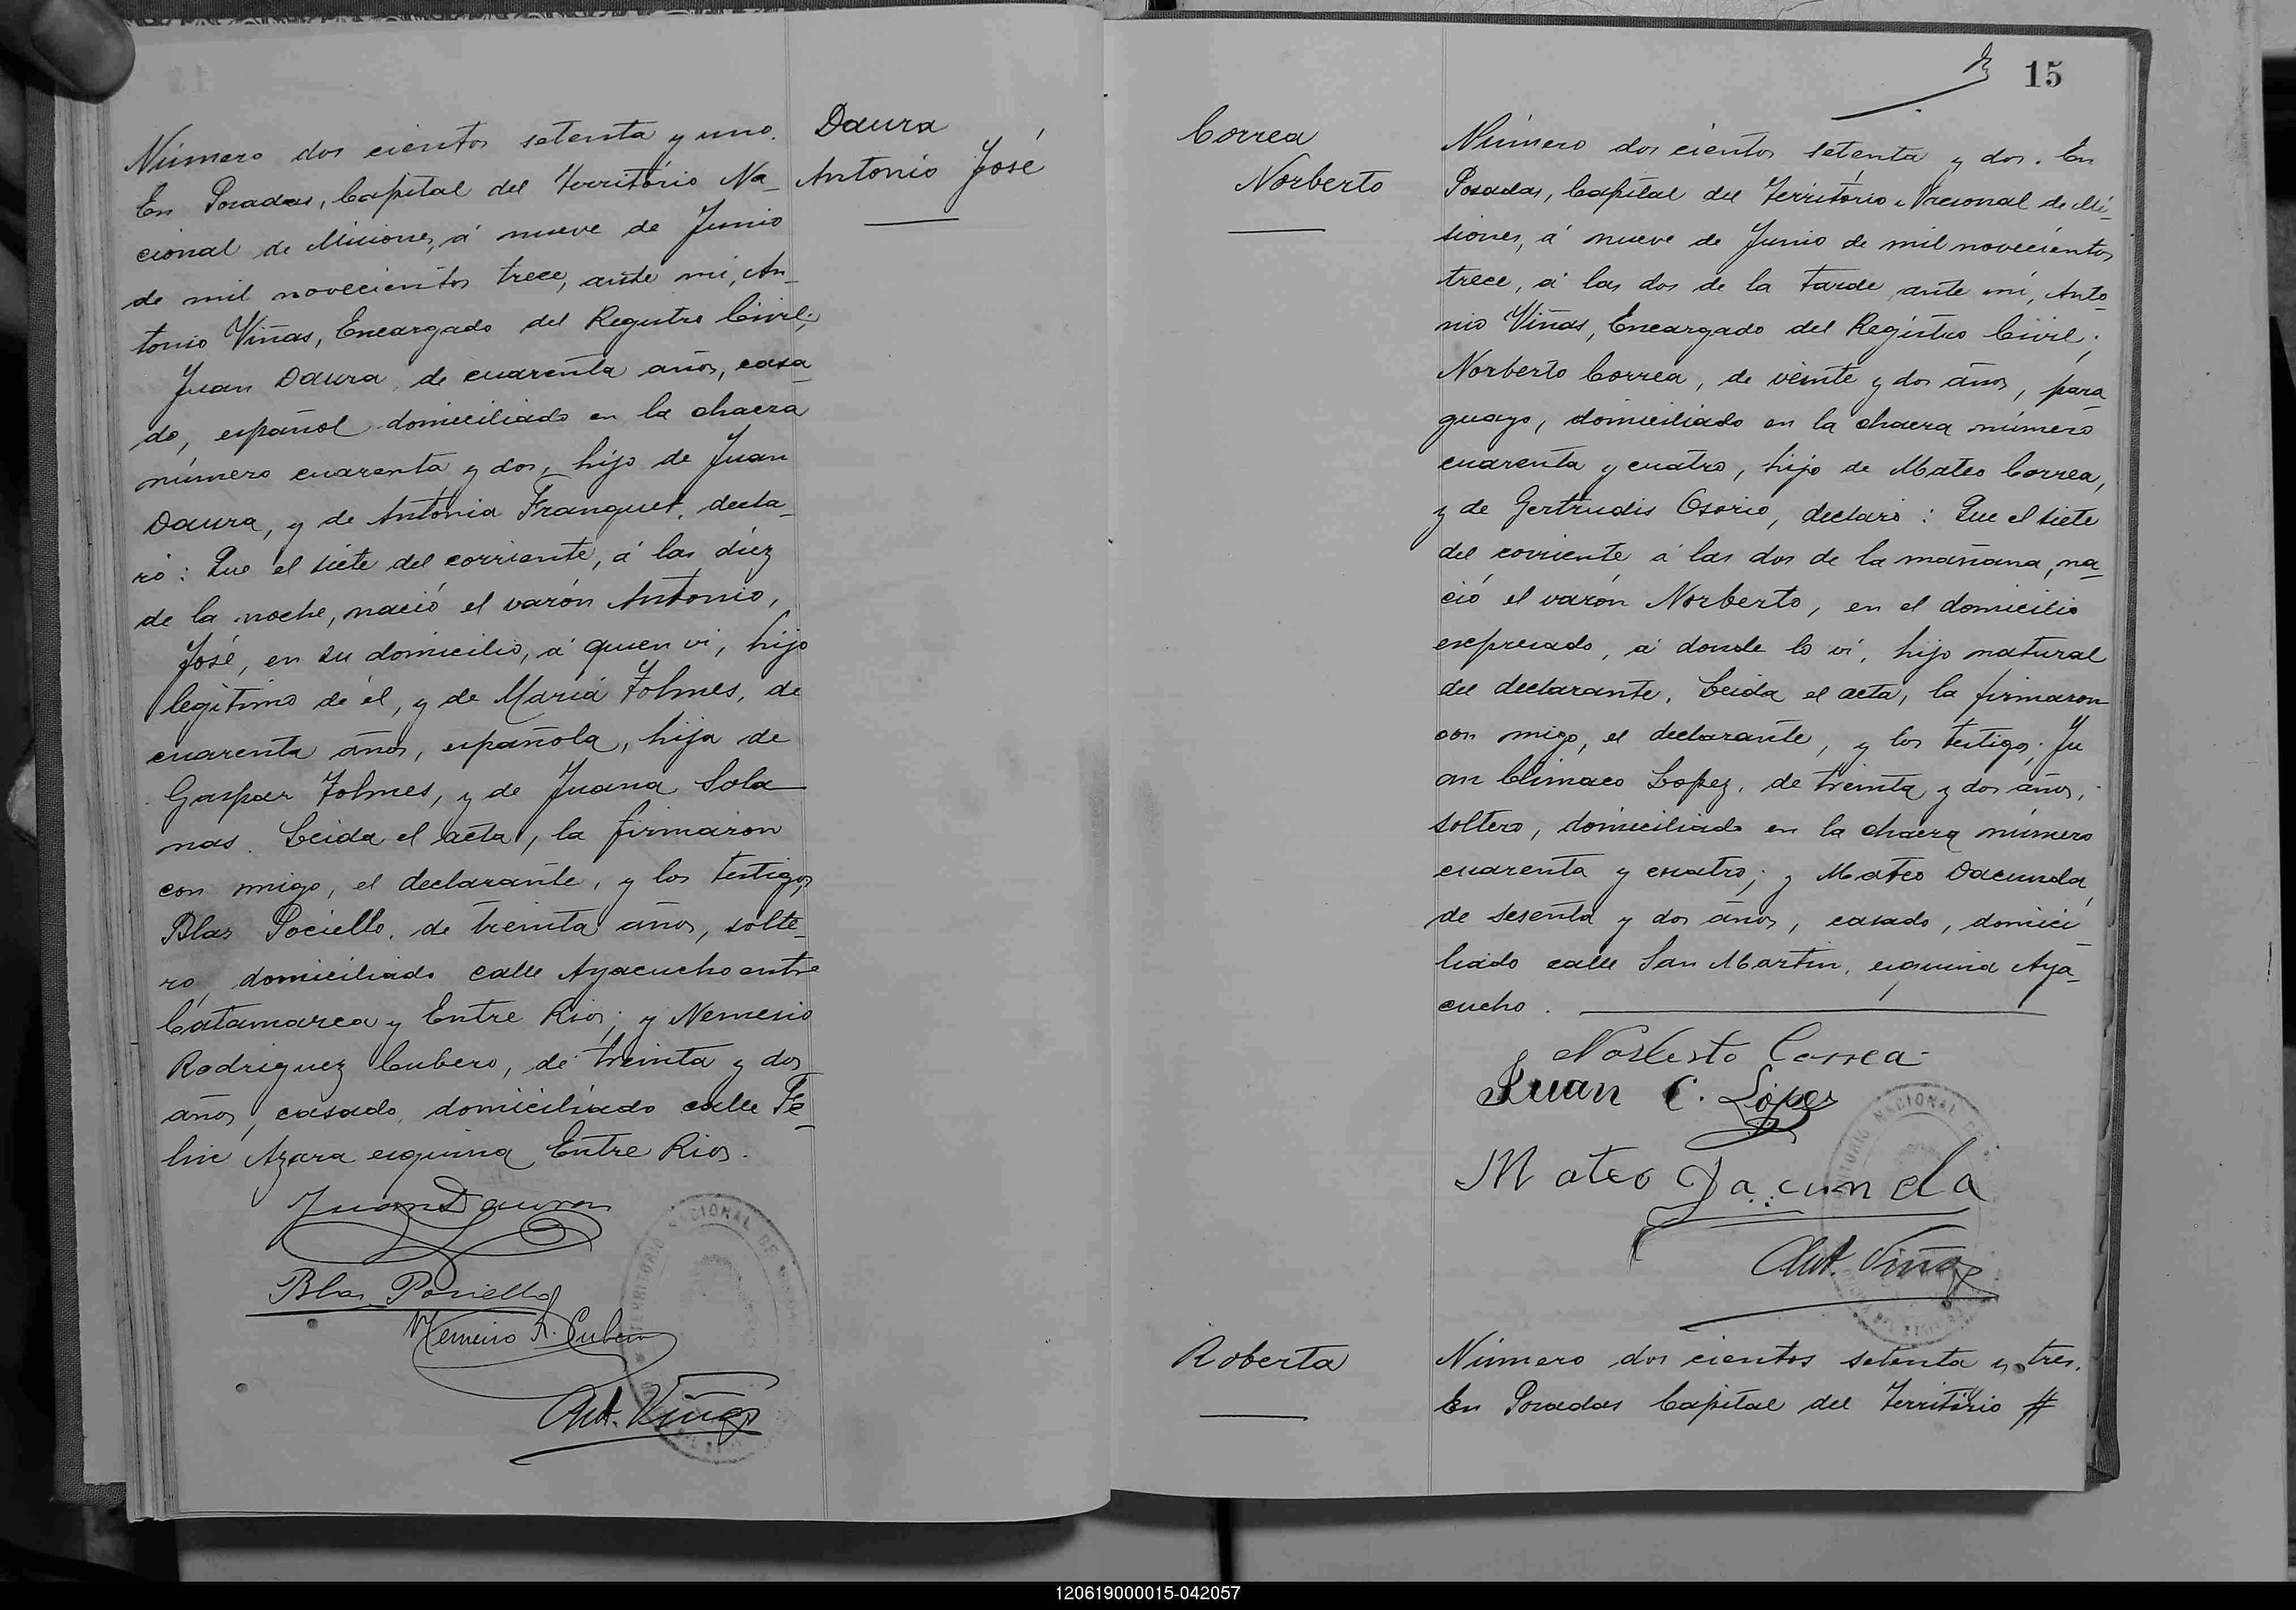 Daura
Antonio José
Número dos cientos setenta y uno.
En Posadas, Capital del Território Na-
cional de Misiones, á nueve de Junio
de mil novecientos trece, ante mi, An-
tonio Viñas, Encargado del Registro Civil;
Juan Daura, de cuarenta años, casa-
do, español domiciliado en la chacra
número cuarenta y dos, hijo de Juan
Daura, y de Antonia Franquet, decla-
ró: Que el siete del corriente, á las diez
de la noche, nació el varón Antonio,
José, en su domicilio, á quien vi, hijo
legítimo de él, y de María Folmes, de
cuarenta años, española, hija de
Gaspar Folmes, y de Juana Sola-
nas. Leida el acta, la firmaron
con migo, el declarante, y los testigos
Blas Pociello, de treinta años, solte-
ro, domiciliado calle Ayacucho entre
Catamarca y Entre Rios; y Nemesio
Rodriguez Cubero, de treinta y dos
años, casado, domiciliado calle Fe-
liú Azara esquina Entre Rios.
Juan Daura
Blas Pociello
Nemesio R. Cubero
Ant. Viñas
TERRITORIO NACIONAL DE
15
Correa
Norberto
Número dos cientos setenta y dos. En
Posadas, Capital del Território Nacional de Mi-
siones, á nueve de Junio de mil novecientos
trece, á las dos de la tarde ante mí, Anto-
nio Viñas, Encargado del Registro Civil;
Norberto Correa, de veinte y dos años, para-
guayo, domiciliado en la chacra número
cuarenta y cuatro, hijo de Mateo Correa,
y de Gertrudis Osorio, declaró: Que el siete
del corriente á las dos de la mañana, na-
ció el varón Norberto, en el domicilio
expresado, á donde lo ví, hijo natural
del declarante. Leida el acta, la firmaron
con migo, el declarante, y los testigos; Ju
an Climaco Lopez, de treinta y dos años,
soltero, domiciliado en la chacra número
cuarenta y cuatro; y Mateo Dacunda,
de sesenta y dos años, casado, domici-
liado calle San Martin, esquina Aya-
cucho.
Norberto Correa
Juan C. López
Mateo Dacunda
Ant. Viñas
TERRITORIO NACIONAL DE
Roberta
Número dos cientos setenta y tres.
En Posadas Capital del Território #
120619000015-042057